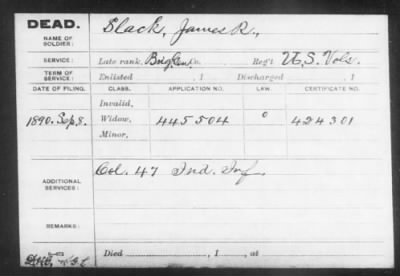 DEAD.
NAME OF SOLDIER: Slack, James R.,
SERVICE: Late rank, Brig Gen Co. Reg't U.S. Vols.
TERM OF SERVICE: Enlisted , 1 Discharged , 1
DATE OF FILING. CLASS. APPLICATION NO. LAW. CERTIFICATE NO.
Invalid,
1890. Sep. 8. Widow, 445504 0 424301
Minor,
ADDITIONAL SERVICES: Col. 47 Ind. Inf.
REMARKS:
Died , 1 , at